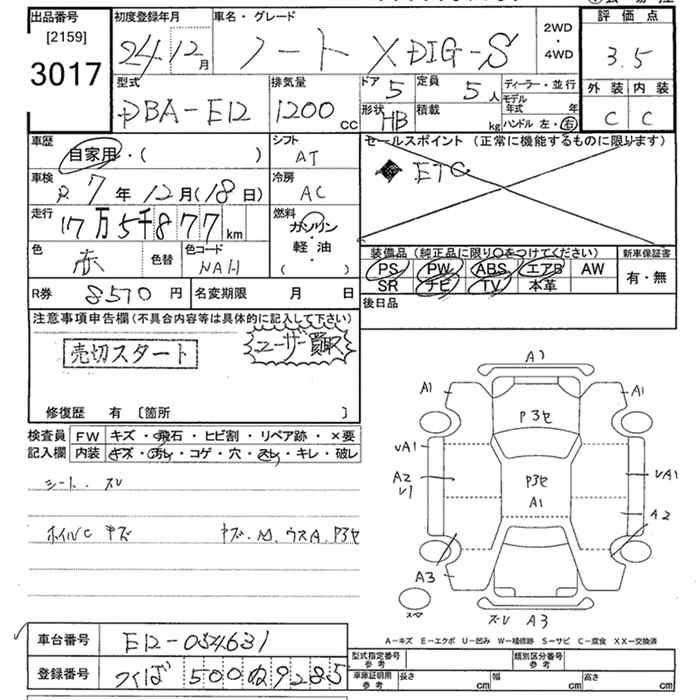 出品番号 初度登録年月 車名・グレード 評価点
[2159]
3017
24/12月 ノート X DIG-S 2WD・4WD 3.5
型式 排気量 ドア 定員 ディーラー・並行 外装 内装
DBA-E12 1200cc 5 5人 モデル年式 年
形状 HB 積載 kg ハンドル 左・右 C C
車歴 シフト セールスポイント (正常に機能するものに限ります)
自家用・( ) AT
ETC
車検 冷房
R7年12月(18日) AC
走行 燃料
17万5千877km ガソリン
軽・油
( )
色 色替 色コード
赤 NAH
装備品 (純正品に限り○をつけてください) 新車保証書
PS PW ABS エアB AW 有・無
SR ナビ TV 本革
R券 8570円 名変期限 月 日
後日品
注意事項申告欄(不具合内容等は具体的に記入して下さい)
売切スタート ユーザー買取
修復歴 有 [箇所 ]
検査員 FW キズ・飛石・ヒビ割・リペア跡・×要
記入欄 内装 キズ・汚れ・コゲ・穴・スレ・キレ・破レ
シート スレ
ホイルC キズ キズ・凹、ウスA、P3セ
A1
A1 A1
P3セ
uA1
A2
U1
P3セ
A1
uA1
A2
A3
スペア
スレ A3
A−キズ E−エクボ U−凹み W−補修跡 S−サビ C−腐食 XX−交換済
車台番号 E12-034631
登録番号 つくば 500 ね 9285
型式指定番号 参考 類別区分番号 参考
車庫証明用 参考 長さ cm 幅 cm 高さ cm